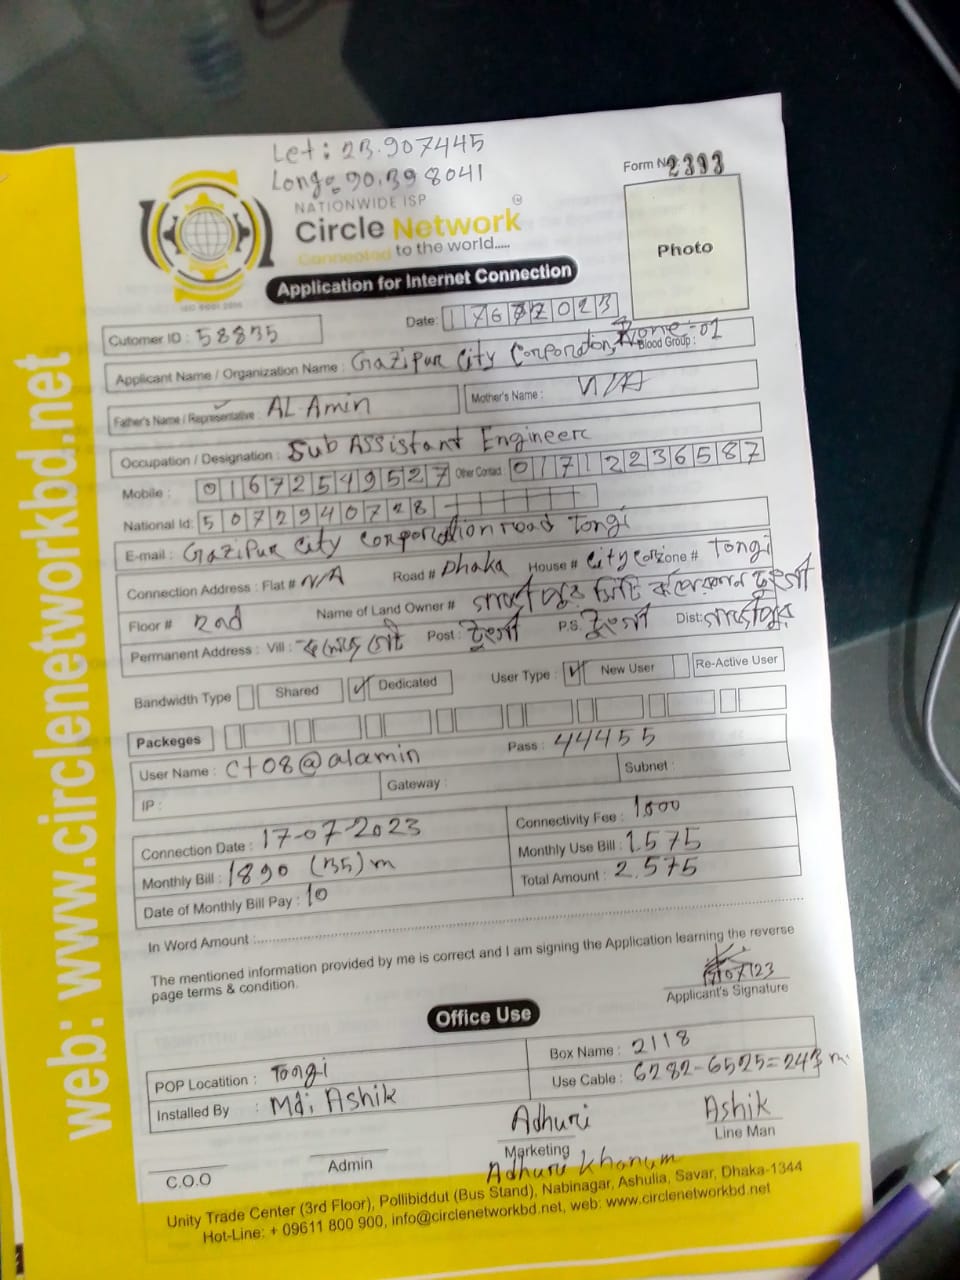 Let: 23.907445
Long: 90.398041
NATIONWIDE ISP
Circle Network
Connected to the world.....
ISO 9001:2015
Form No 2393
Photo
Application for Internet Connection
Cutomer ID : 58835
Date: 17 07 2023
Applicant Name / Organization Name : Gazipur City Corporation, Zone-01
Blood Group :
Father's Name / Representative : AL Amin
Mother's Name : N/A
Occupation / Designation : Sub Assistant Engineer
Mobile : 01672549527 Other Contact 01712236587
National Id: 5072940728
E-mail : Gazipur City Corporation road Tongi
Connection Address : Flat # N/A Road # Dhaka House # City Cor Zone # Tongi
Floor # 2nd Name of Land Owner # গাজীপুর সিটি কর্পোরেশন টঙ্গী
Permanent Address : Vill : Post : টঙ্গী P.S. টঙ্গী Dist: গাজীপুর
Bandwidth Type Shared ✓ Dedicated User Type : ✓ New User Re-Active User
Packeges
User Name : ct08@alamin Pass : 44455
IP : Gateway : Subnet :
Connection Date : 17-07-2023 Connectivity Fee : 1000
Monthly Bill : 1890 (135) m Monthly Use Bill : 1575
Date of Monthly Bill Pay : 10 Total Amount : 2,575
In Word Amount :
The mentioned information provided by me is correct and I am signing the Application learning the reverse
page terms & condition.
Applicant's Signature
Office Use
POP Locatition : Tongi Box Name : 2118
Installed By : Md: Ashik Use Cable : 6282-6525=243 m.
Adhuri Ashik
C.O.O Admin Marketing Line Man
Adhuri Khanum
Unity Trade Center (3rd Floor), Pollibiddut (Bus Stand), Nabinagar, Ashulia, Savar, Dhaka-1344
Hot-Line: + 09611 800 900, info@circlenetworkbd.net, web: www.circlenetworkbd.net
web: www.circlenetworkbd.net